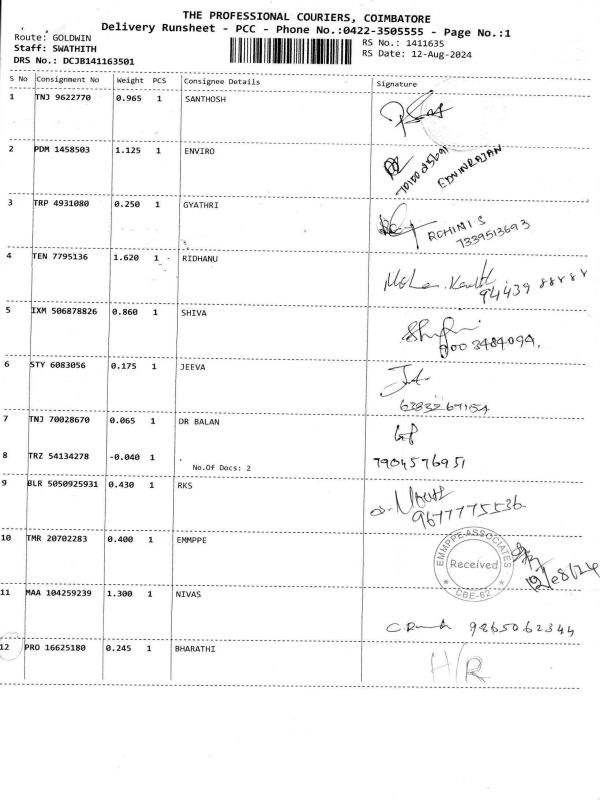 THE PROFESSIONAL COURIERS, COIMBATORE
Delivery Runsheet - PCC - Phone No.:0422-3505555 - Page No.:1
Route: GOLDWIN
RS No.: 1411635
Staff: SWATHITH
RS Date: 12-Aug-2024
DRS No.: DCJB141163501
S No Consignment No Weight PCS Consignee Details Signature
1 TNJ 9622770 0.965 1 SANTHOSH
2 PDM 1458503 1.125 1 ENVIRO
EDWINRAJAN
3 TRP 4931080 0.250 1 GYATHRI
ROHINI S
7339513693
4 TEN 7795136 1.620 1 RIDHANU
94439 88888
5 IXM 506878826 0.860 1 SHIVA
9003484094.
6 STY 6083056 0.175 1 JEEVA
6383267154
7 TNJ 70028670 0.065 1 DR BALAN
8 TRZ 54134278 -0.040 1
No.Of Docs: 2
7904576951
9 BLR 5050925931 0.430 1 RKS
9677775536.
10 TMR 20702283 0.400 1 EMMPPE
EMMPPE ASSOCIATES
Received
CBE-62
12/08/24
11 MAA 104259239 1.300 1 NIVAS
9865062344
12 PRO 16625180 0.245 1 BHARATHI
H/R